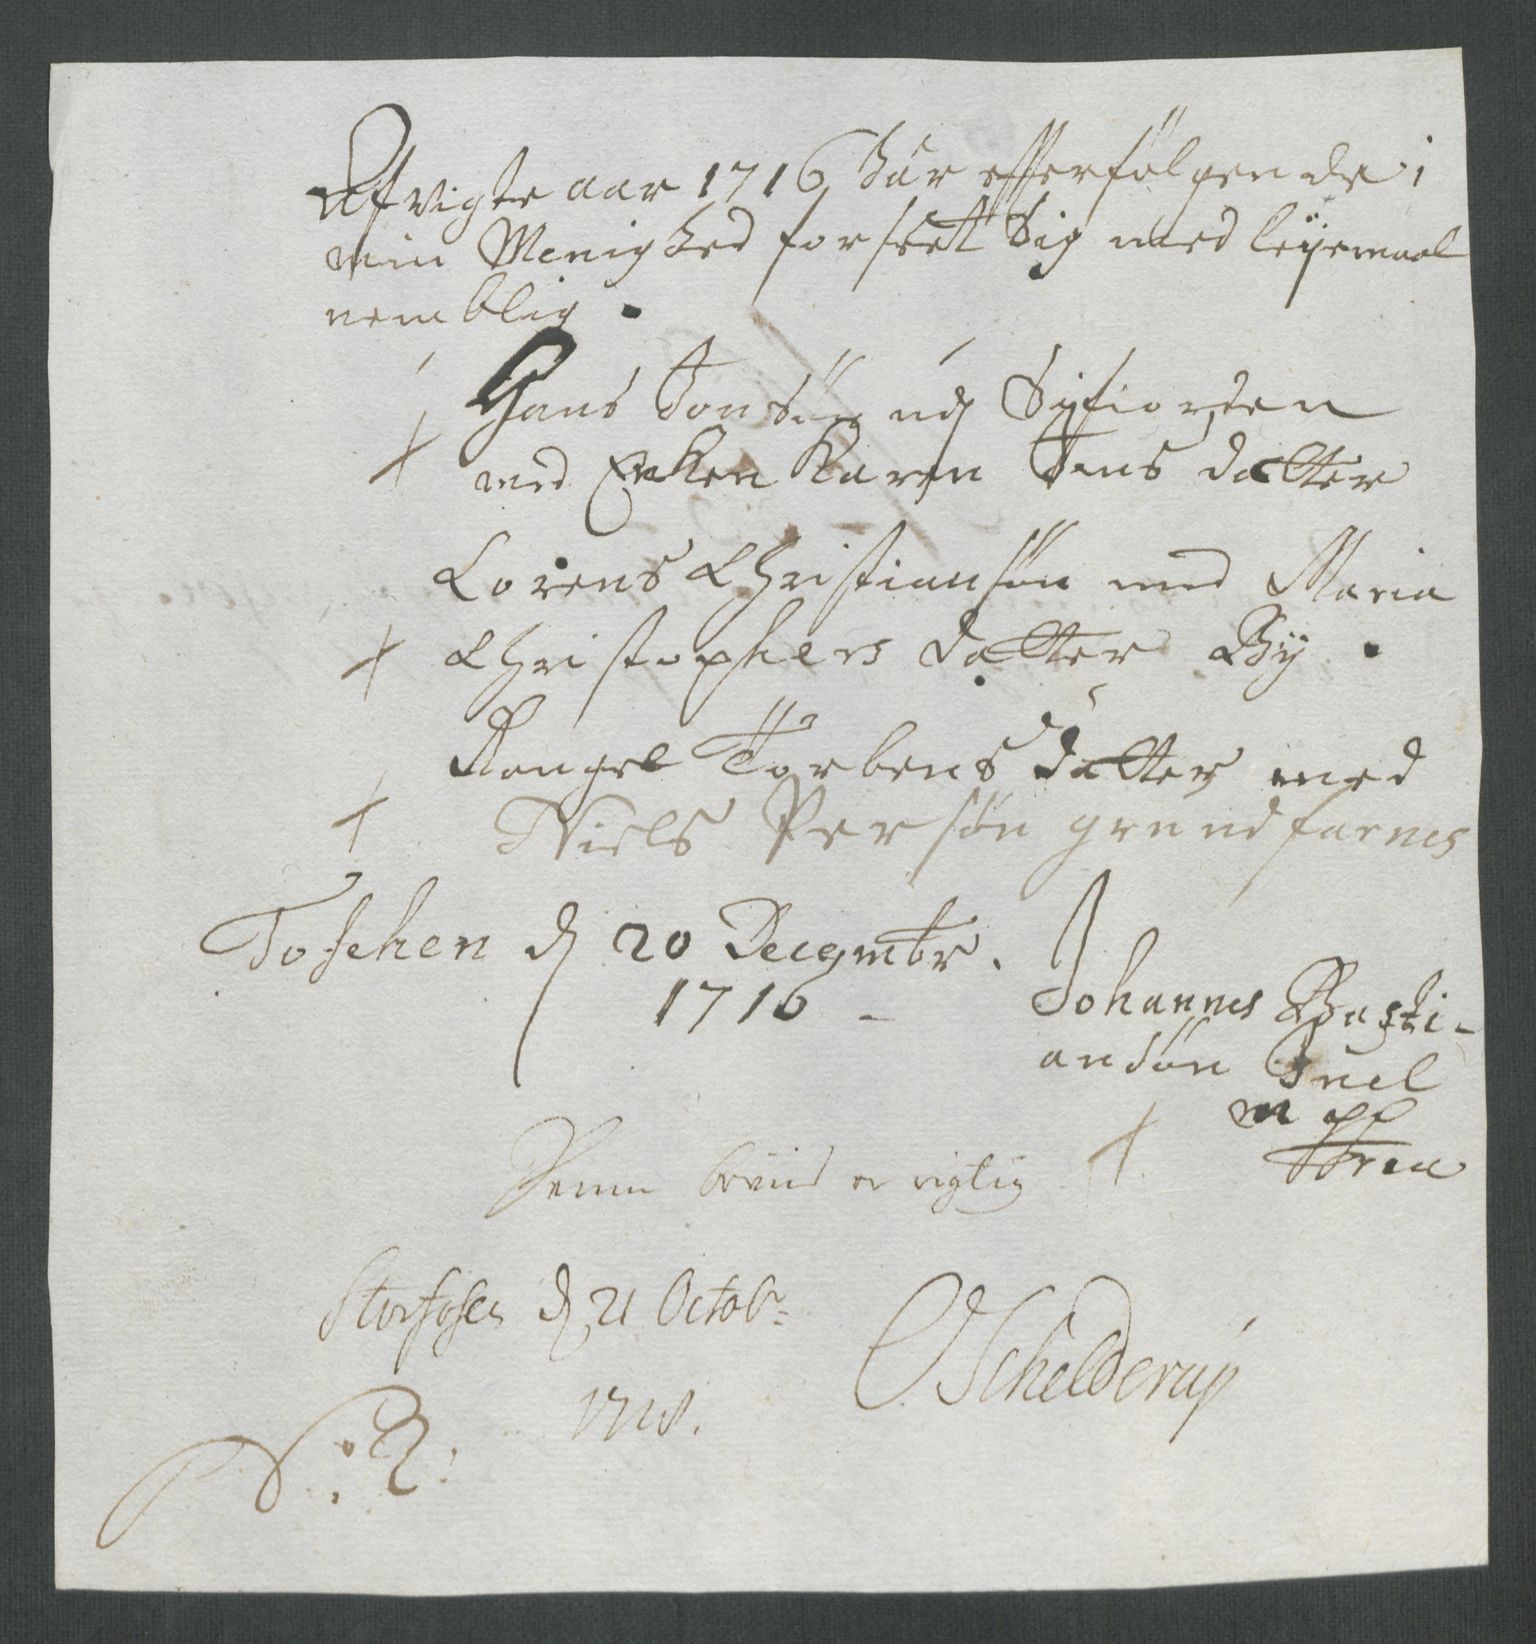 Afvigte aar 1716 har effterfølgende i
min Menighed forseet Sig med leÿermaal
nemblig.
Hans Jonsøn udj Sÿfiorden
med Enken Karen Jens datter
Lorens Christiansøn med Maria
Christophers datter Bÿ.
Rangel Torbens datter med
Niels Persøn grundfarnes
Toschen dj 20 Decembr.
1716 -
Johannes Basti-
ansøn Juel
m pp
Denne er rigtig
Storfosen dj 21 Octobr:
1718.
OSchelderup